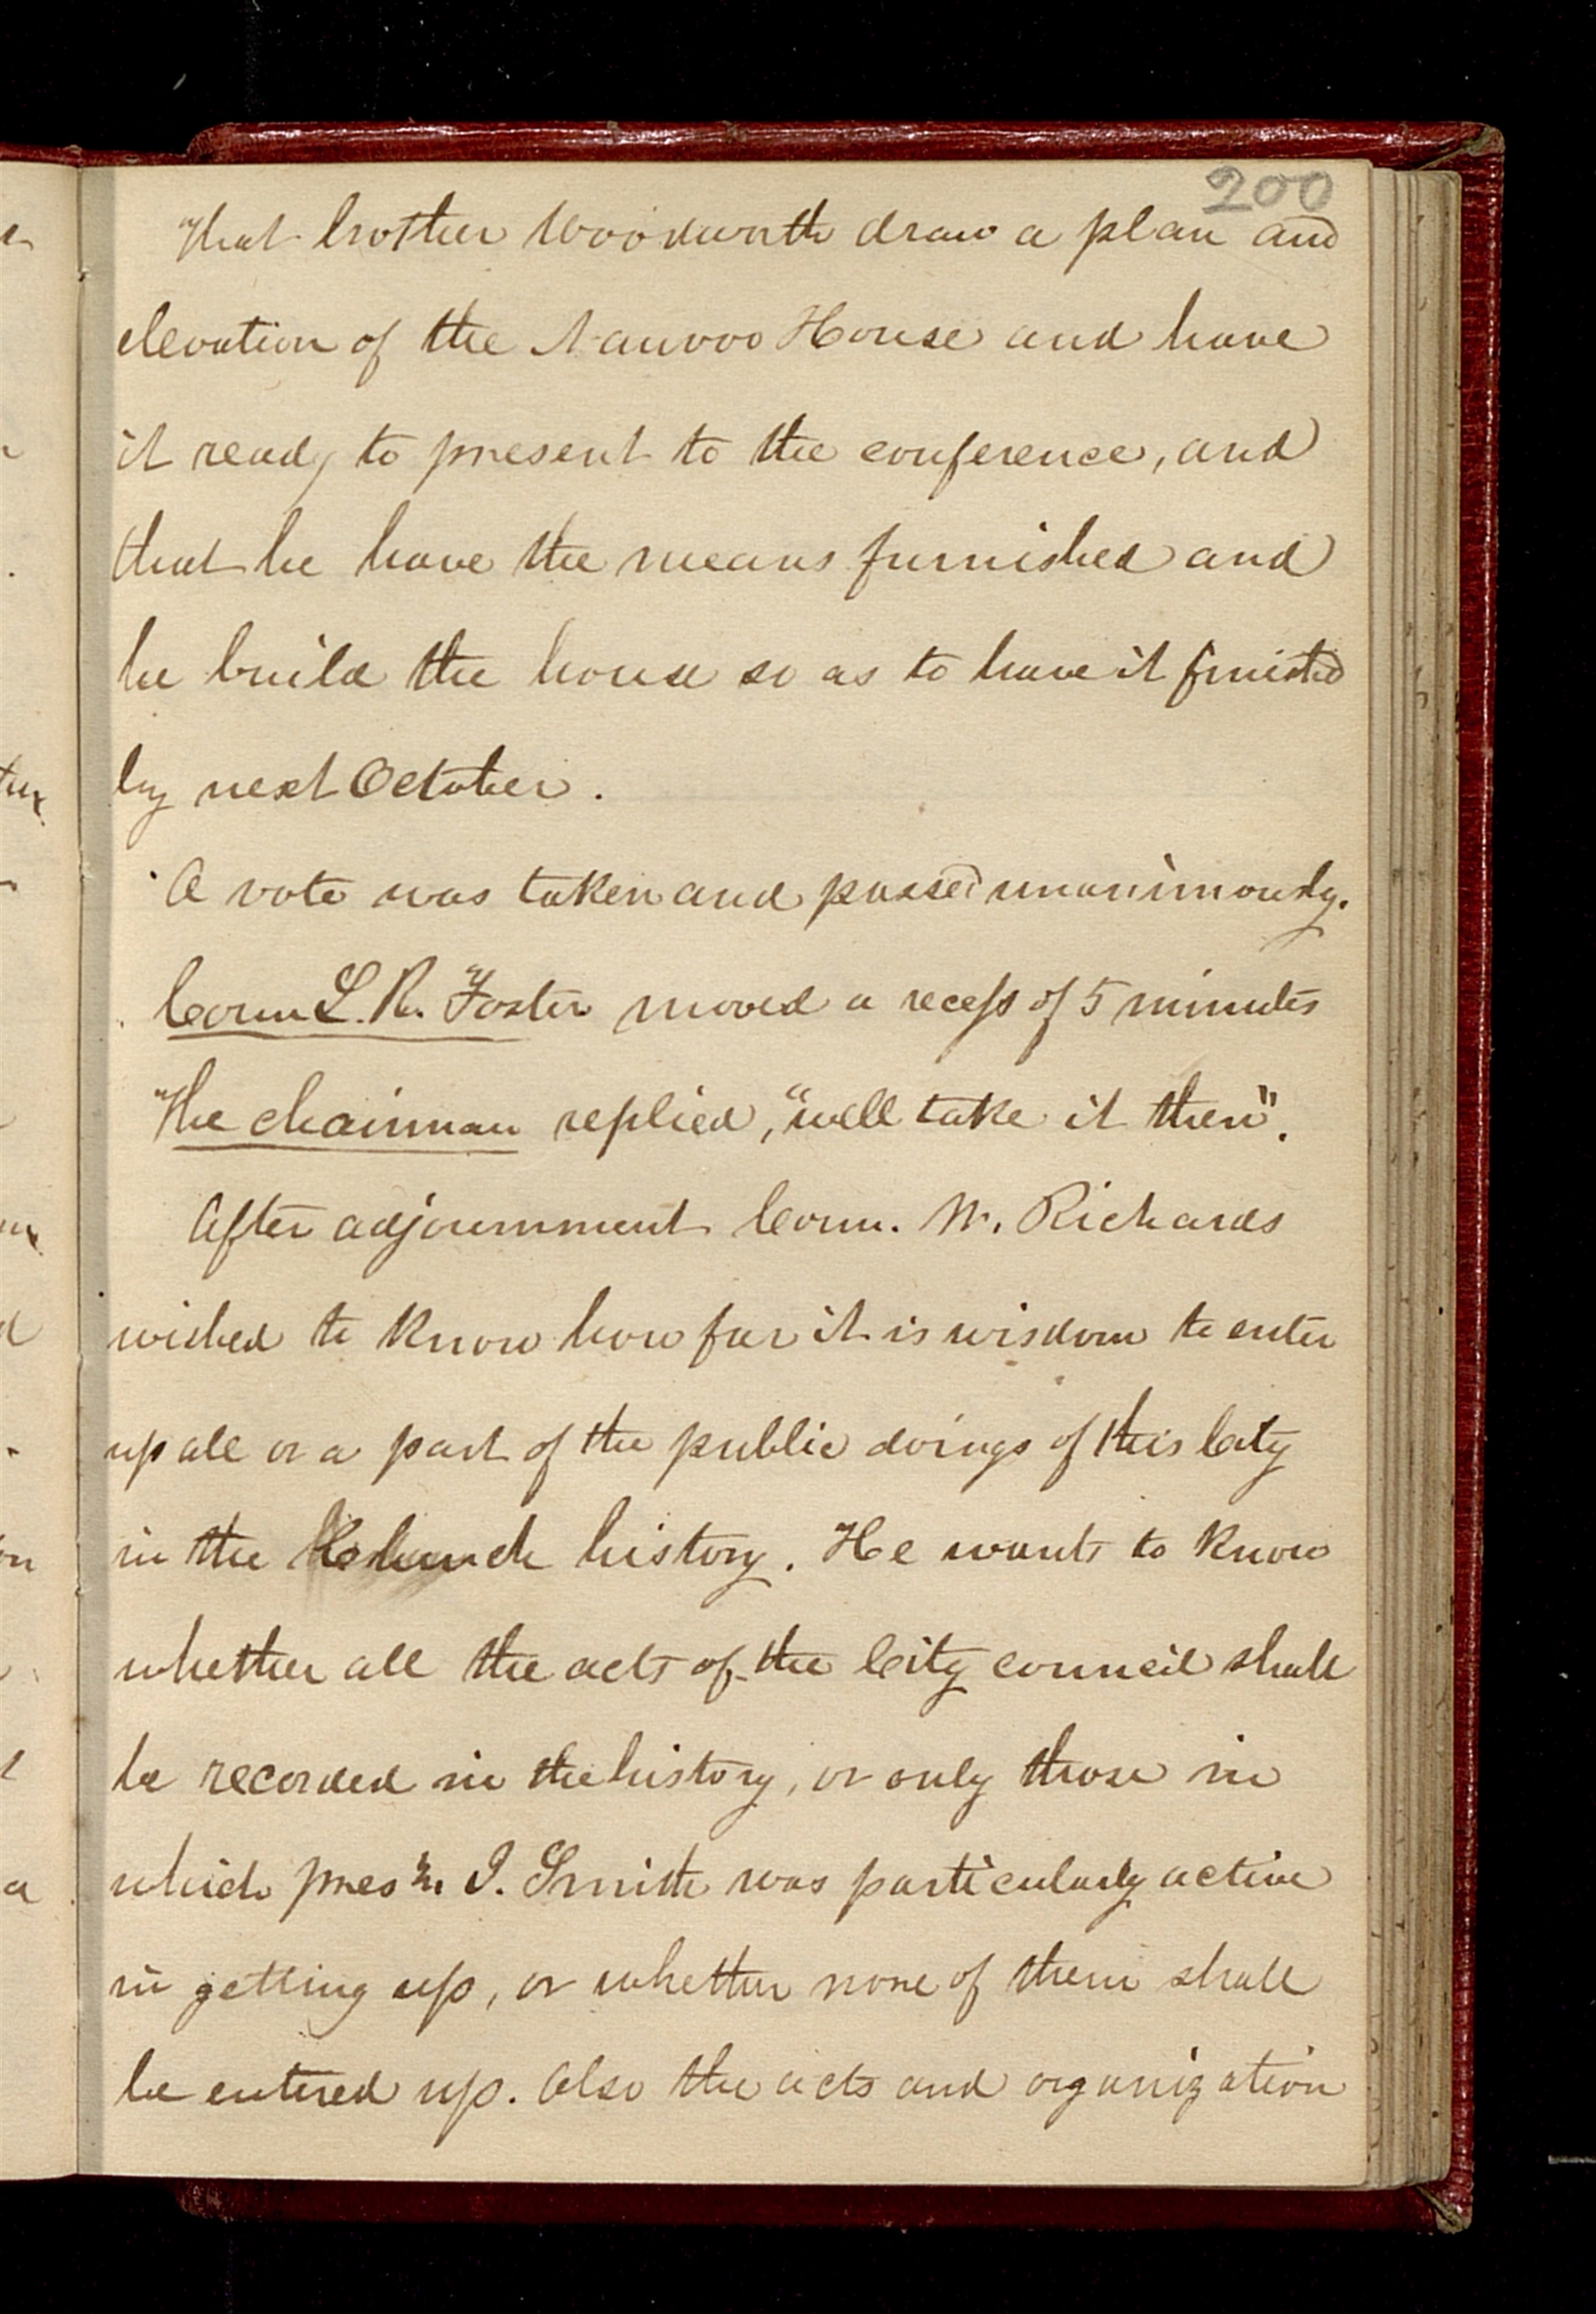 200
That brother Woodworth draw a plan and
elevation of the Nauvoo House and have
it ready to present to the conference, and
that he have the means furnished and
he build the house so as to have it finished
by next October.
A vote was taken and passed unanimously.
Coun L. R. Foster moved a recess of 5 minutes
The chairman replied, "well take it then".
After adjournment Coun. W. Richards
wished to know how far it is wisdom to enter
up all or a part of the public doings of this City
in the Church history. He wants to know
whether all the acts of the City council shall
be recorded in the history, or only those in
which pres^n. J. Smith was particularly active
in getting up, or whether none of them shall
be entered up. Also the acts and organization